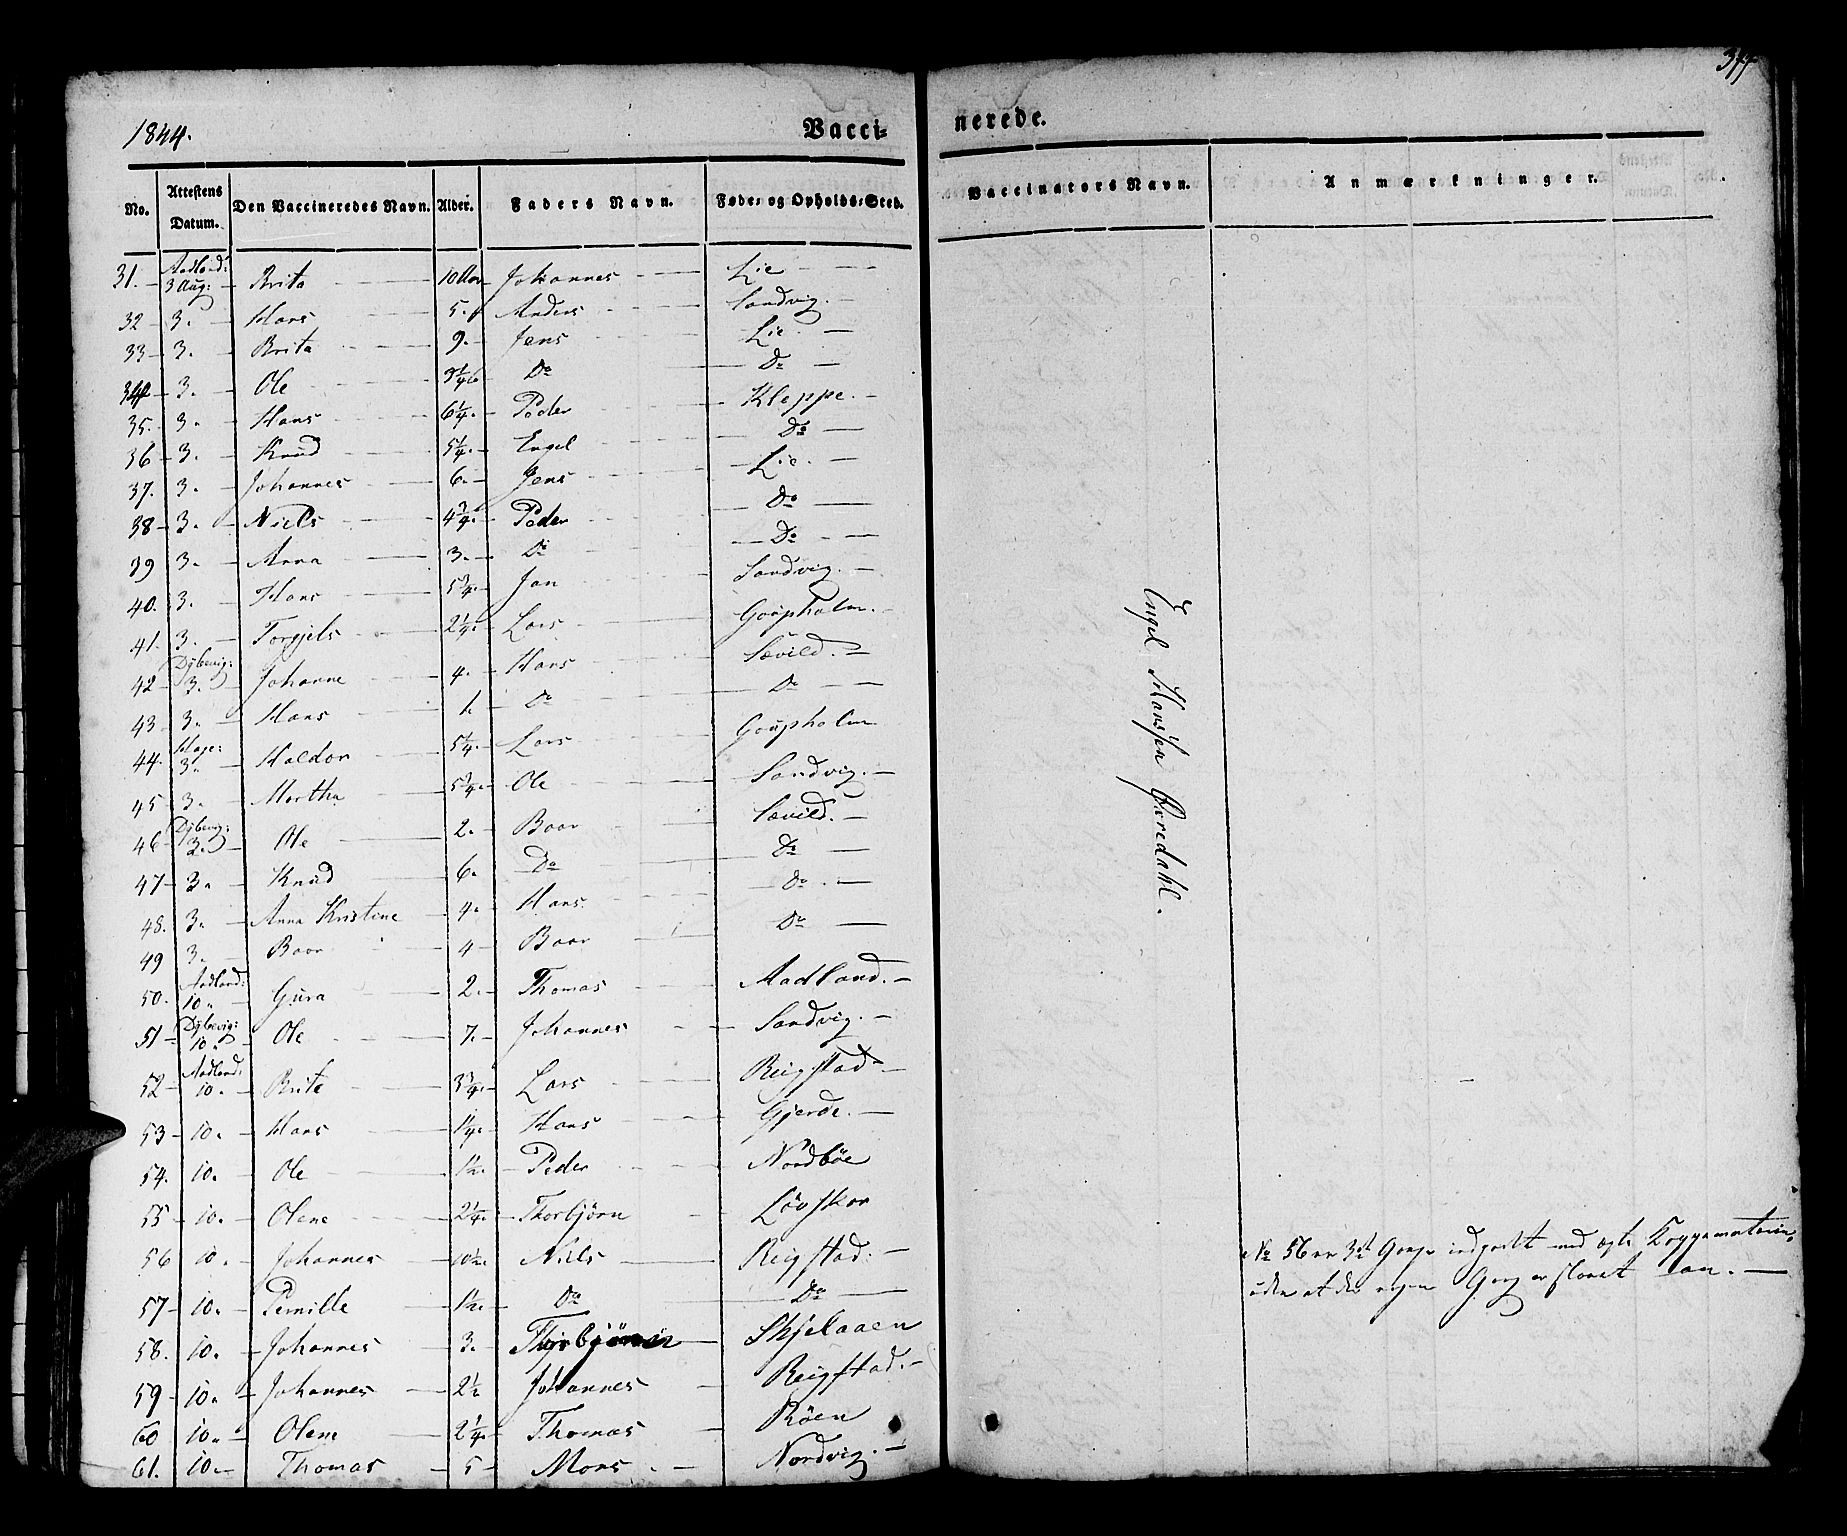 1844.
Vacci=
nerede.
No. Attestens Datum. Den Vaccineredes Navn. Alder. Faders Navn. Føde= og Opholds=Sted.
Vaccinators Navn. Anmærkninger.
31. Aadland: 3 Aug: Brita 10 Aar Johannes Lie
32 3. Hans 5. Anders Sandvig.
33 3. Brita 9. Jens Lie.
34 3. Ole Do Do
35. 3. Hans 6¼. Peder Kleppe.
36 3. Knud 5¼. Engel Do
37. 3. Johannes 6. Jens Lie.
38 3. Niels 4¾. Peder Do
39 3. Anna 3. Do Do
40. 3. Hans 5¾. Jan Sandvig.
41. 3. Torgjels 2¼. Lars Goupholm.
42 Dybevig: 3. Johanne 4. Hans Sævild.
43 3. Hans 1. Do Do
44. Hage: 3. Haldor 5¼. Lars Goupholm
45 3. Martha 5¾. Ole Sandvig.
46 Dybevig: 3. Ole 2. Baar Sævild.
47 3. Knud 6. Do Do
48. 3. Anna Kristine 4. Hans Do
49 3. Baar 4 Baar Do
50. Aadland: 10. Gura 2. Thomas Aadland.
51 Dybevig: 10. Ole 7. Johannes Sandvig.
52 Aadland: 10. Brita 3¾. Lars Reigstad
53 10. Hans 1¼. Hans Gjerde.
54. 10. Ole 1½. Peder Nordbøe
55 10. Olene 2¼. Thorbjørn Løvskar
56 10. Johannes 10½. Niels Reigstad.
57 10. Pernille 1½. Do Do
58. 10. Johannes 3. Thorbjørn Skjelaaen
59 10. Johannes 2½ Johannes Reigstad.
60 10. Olene 2¼. Thomas Røen
61. 10. Thomas 5 Mons Nordvig.
Engel Hansen Øvredahl.
No 56 er 3die Gang indpodet med ægte Koppematerie,
uden at den nogen Gang er slaaet an.